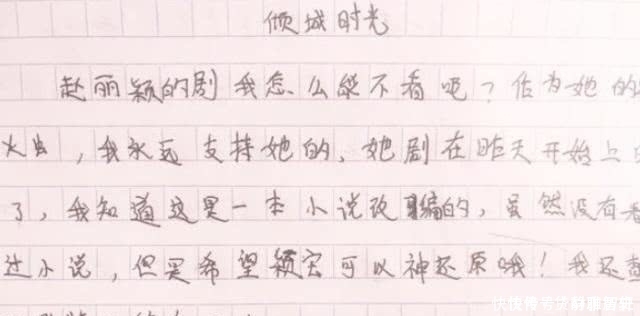 倾城时光
赵丽颖的剧我怎么能不看呢？作为她的
火虫，我永远支持她的，她剧在昨天开始上
了，我知道这是一本小说改编的，虽然没有看
过小说，但是希望颖宝可以神还原哦！我还